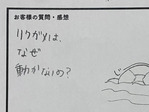 お客様の質問・感想
リクガメは、
なぜ
動かないの？